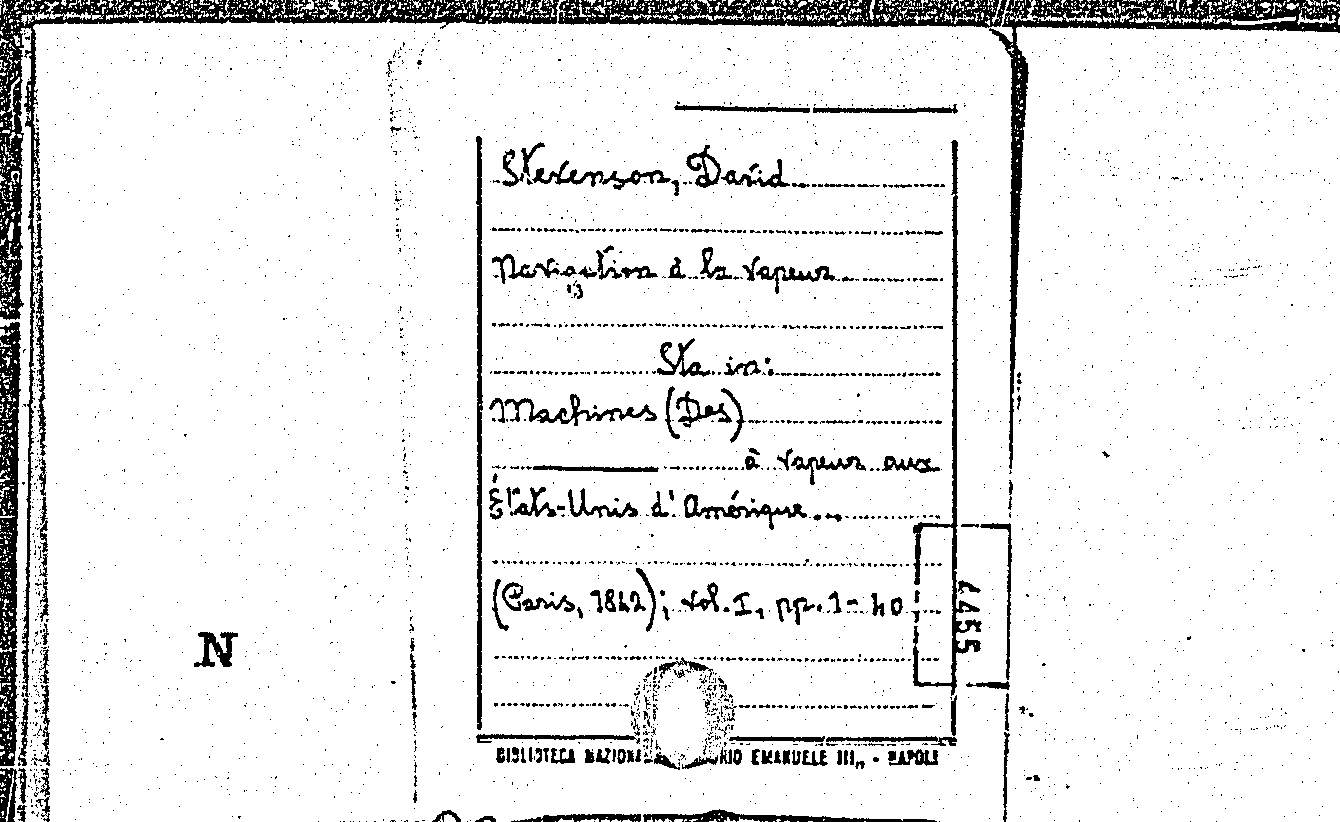 Stevenson, David
Navigation à la vapeur
Sta in:
Machines (Des)
à vapeur aux
États-Unis d'Amérique...
(Paris, 1842); vol. I, pp. 1-40
4455
N
BIBLIOTECA NAZIONA RIO EMANUELE III„ - NAPOLI